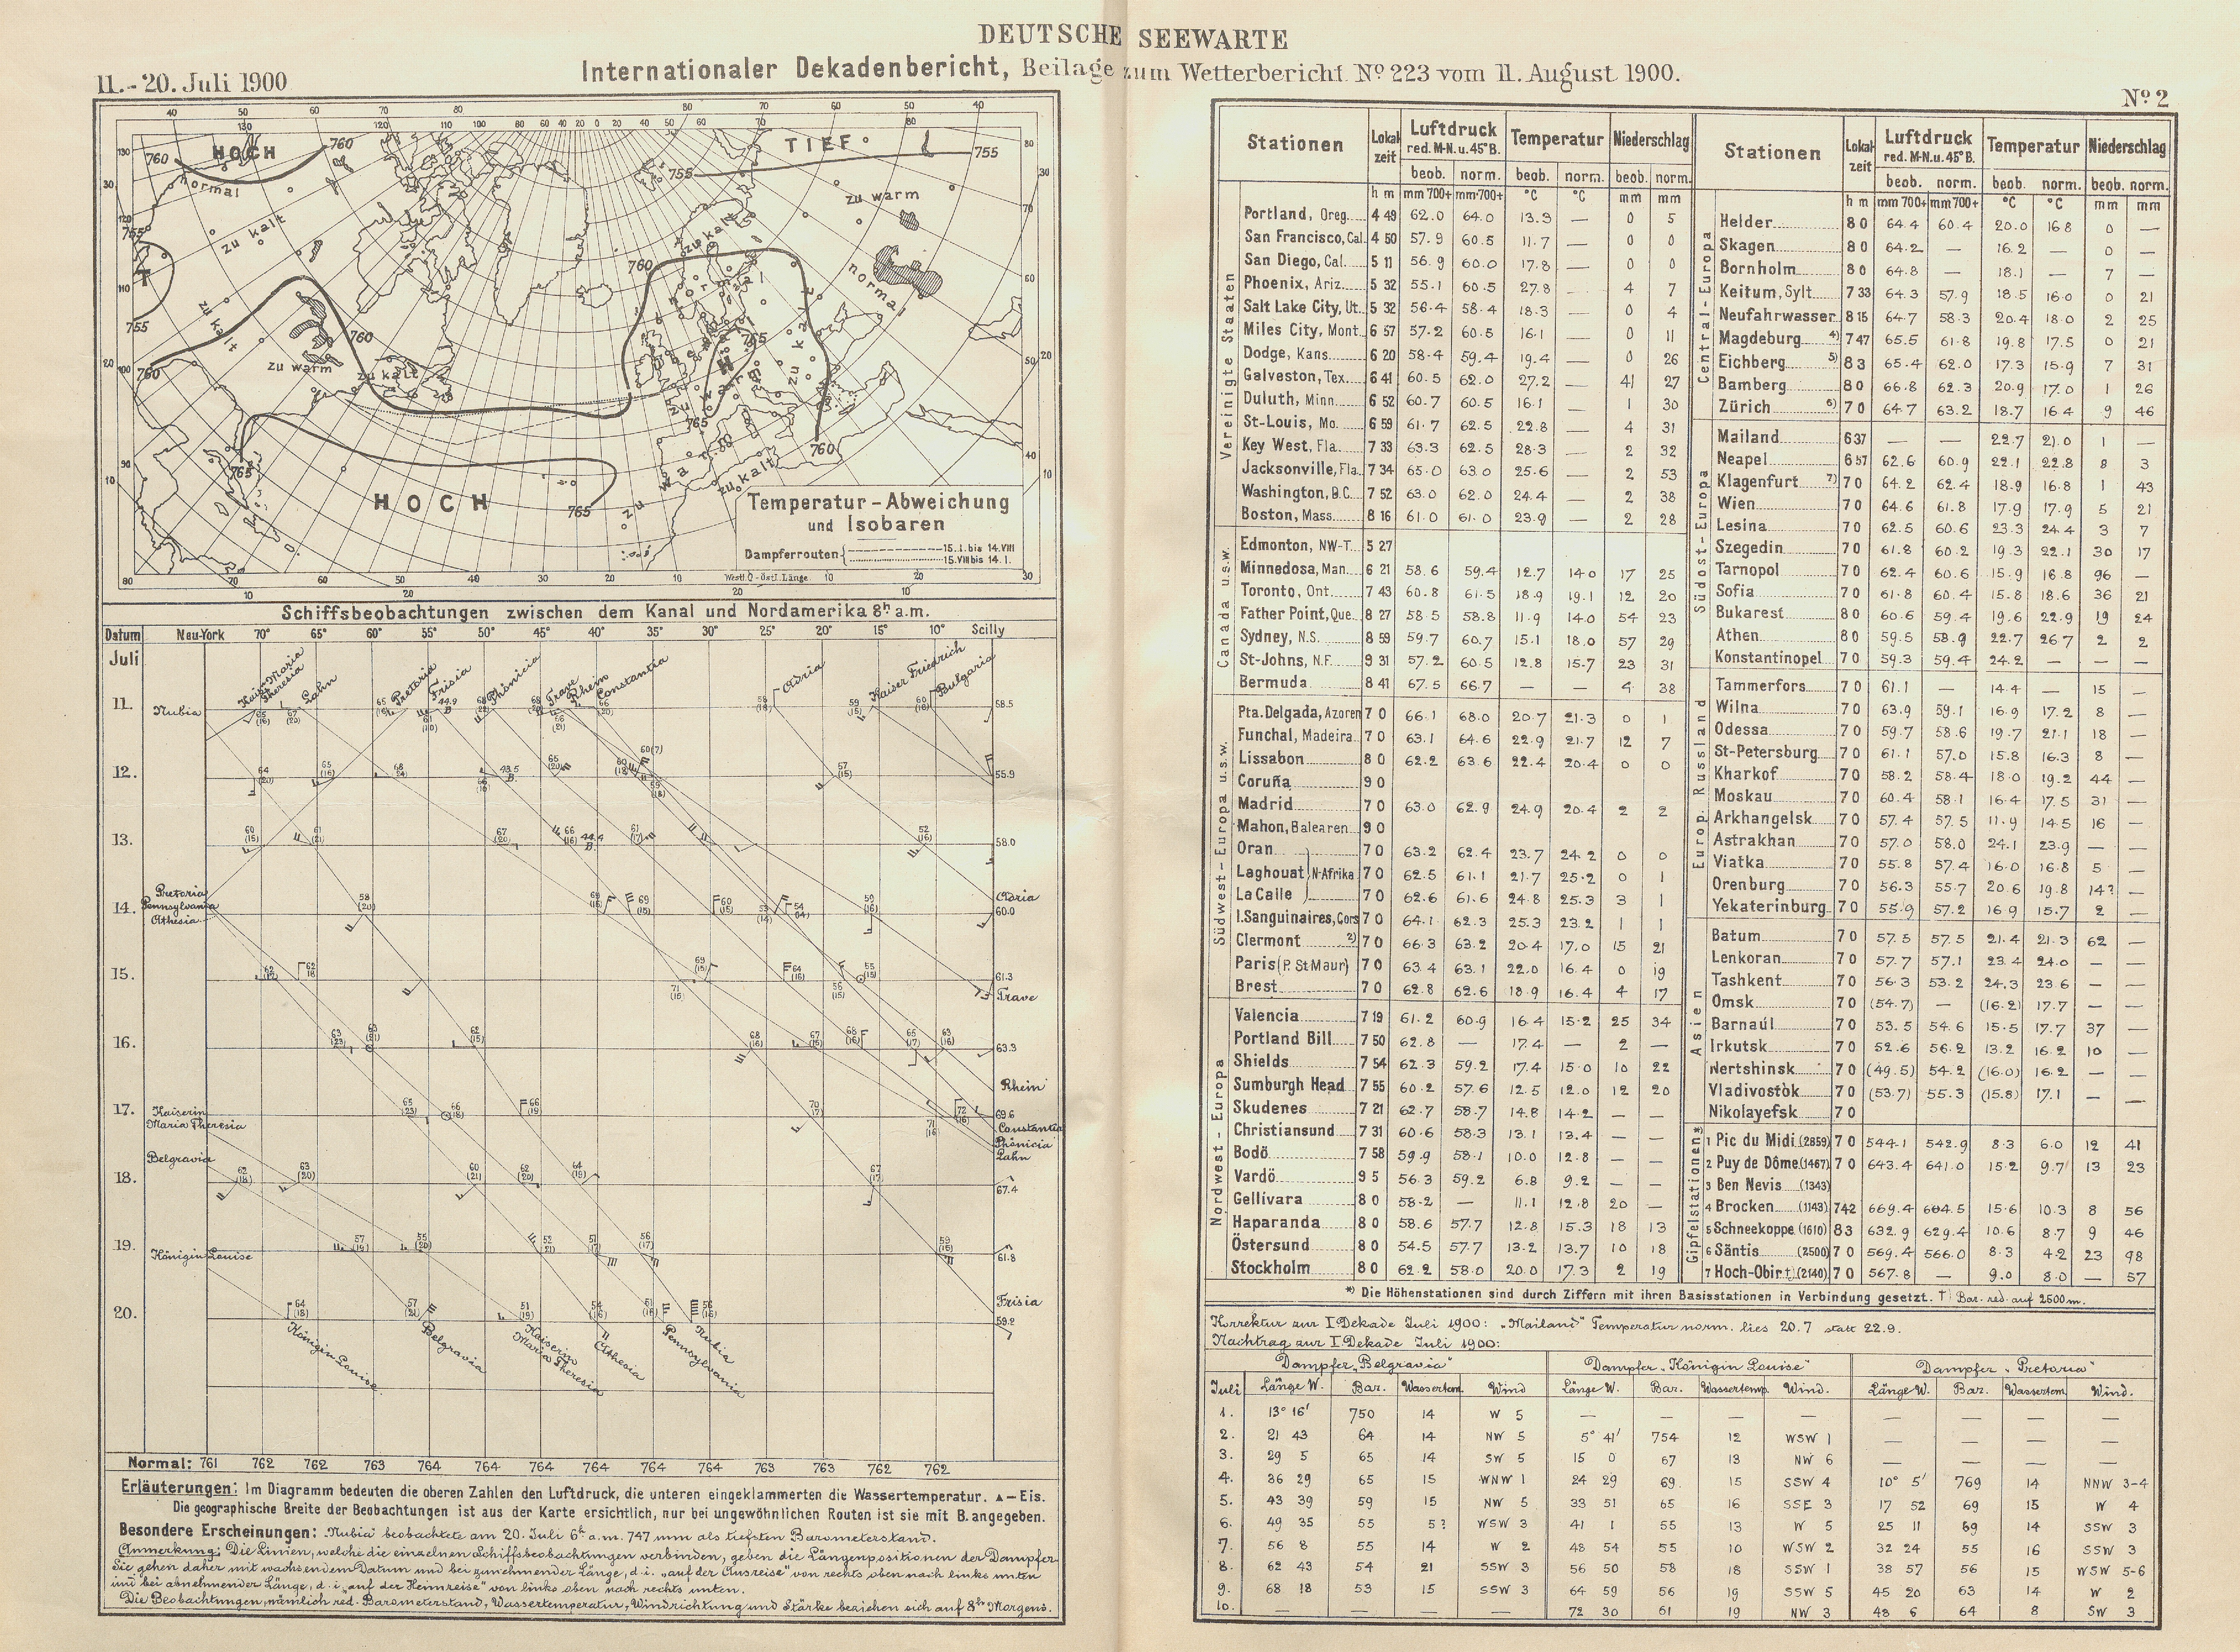 DEUTSCHE SEEWARTE
11.-20. Juli 1900
Internationaler Dekadenbericht, Beilage zum Wetterbericht Nº 223 vom 11. August 1900.
Nº 2
HOCH
TIEF
normal
zu kalt
zu warm
zu kalt
normal
T
zu kalt
zu warm
zu kalt
normal
zu kalt
zu warm
zu kalt
HOCH
755
760
765
Temperatur-Abweichung
und Isobaren
Dampferrouten { 15.I. bis 14.VIII
15.VIII bis 14.I.
Westl. 0 - Östl. Länge
Schiffsbeobachtungen zwischen dem Kanal und Nordamerika 8h a.m.
Datum Neu-York 70° 65° 60° 55° 50° 45° 40° 35° 30° 25° 20° 15° 10° Scilly
Juli
Kaisn. Maria Theresia
Lahn
Pretoria
Frisia
Phönicia
Trave
Rhein
Constantia
Adria
Kaiser Friedrich
Bulgaria
11. Nubia 58.5
12. 55.9
13. 58.0
14. Pretoria Pennsylvania Athesia
Adria 60.0
15. 61.3
Trave
16. 63.3
Rhein
17. Kaiserin Maria Theresia 69.6
Constantia
Phönicia
Lahn
Belgravia
18. 67.4
19. Königin Louise 61.8
Frisia
20. 59.2
Königin Louise
Belgravia
Kaiserin Maria Theresia
Athesia
Pennsylvania
Nubia
Normal: 761 762 762 763 764 764 764 764 764 763 763 762 762
Erläuterungen: Im Diagramm bedeuten die oberen Zahlen den Luftdruck, die unteren eingeklammerten die Wassertemperatur. ▲-Eis.
Die geographische Breite der Beobachtungen ist aus der Karte ersichtlich, nur bei ungewöhnlichen Routen ist sie mit B. angegeben.
Besondere Erscheinungen: „Nubia" beobachtete am 20. Juli 6h a.m. 747 mm als tiefsten Barometerstand.
Anmerkung: Die Linien, welche die einzelnen Schiffsbeobachtungen verbinden, geben die Längenpositionen der Dampfer.
Sie gehen daher mit wachsendem Datum und bei zunehmender Länge, d.i. „auf der Ausreise" von rechts oben nach links unten
und bei abnehmender Länge, d.i. „auf der Heimreise" von links oben nach rechts unten.
Die Beobachtungen, nämlich red. Barometerstand, Wassertemperatur, Windrichtung und Stärke beziehen sich auf 8h Morgens.
Stationen Lokalzeit Luftdruck red. M-N. u. 45° B. Temperatur Niederschlag
beob. norm. beob. norm. beob. norm.
h m mm 700+ mm 700+ °C °C mm mm
Vereinigte Staaten
Portland, Oreg. 4 49 62.0 64.0 13.9 — 0 5
San Francisco, Cal. 4 50 57.9 60.5 11.7 — 0 0
San Diego, Cal. 5 11 56.9 60.0 17.8 — 0 0
Phoenix, Ariz. 5 32 55.1 60.5 27.8 — 4 7
Salt Lake City, Ut. 5 32 56.4 58.4 18.3 — 0 4
Miles City, Mont. 6 57 57.2 60.5 16.1 — 0 11
Dodge, Kans. 6 20 58.4 59.4 19.4 — 0 26
Galveston, Tex. 6 41 60.5 62.0 27.2 — 41 27
Duluth, Minn. 6 52 60.7 60.5 16.1 — 1 30
St-Louis, Mo. 6 59 61.7 62.5 22.8 — 4 31
Key West, Fla. 7 33 63.3 62.5 28.3 — 2 32
Jacksonville, Fla. 7 34 65.0 63.0 25.6 — 2 53
Washington, D.C. 7 52 63.0 62.0 24.4 — 2 38
Boston, Mass. 8 16 61.0 61.0 23.9 — 2 28
Canada u.s.w.
Edmonton, NW-T. 5 27
Minnedosa, Man. 6 21 58.6 59.4 12.7 14.0 17 25
Toronto, Ont. 7 43 60.8 61.5 18.9 19.1 12 20
Father Point, Que. 8 27 58.5 58.8 11.9 14.0 54 23
Sydney, N.S. 8 59 59.7 60.7 15.1 18.0 57 29
St-Johns, N.F. 9 31 57.2 60.5 12.8 15.7 23 31
Bermuda 8 41 67.5 66.7 — — 4 38
Südwest-Europa u.s.w.
Pta. Delgada, Azoren 7 0 66.1 68.0 20.7 21.3 0 1
Funchal, Madeira 7 0 63.1 64.6 22.9 21.7 12 7
Lissabon 8 0 62.2 63.6 22.4 20.4 0 0
Coruña 9 0
Madrid 7 0 63.0 62.9 24.9 20.4 2 2
Mahon, Balearen 9 0
Oran 7 0 63.2 62.4 23.7 24.2 0 0
Laghouat } N-Afrika 7 0 62.5 61.1 21.7 25.2 0 1
La Calle 7 0 62.6 61.6 24.8 25.3 3 1
I. Sanguinaires, Cors 7 0 64.1 62.3 25.3 23.2 1 1
Clermont 2) 7 0 66.3 63.2 20.4 17.0 15 21
Paris (P. St Maur) 7 0 63.4 63.1 22.0 16.4 0 19
Brest 7 0 62.8 62.6 18.9 16.4 4 17
Nordwest-Europa
Valencia 7 19 61.2 60.9 16.4 15.2 25 34
Portland Bill 7 50 62.8 — 17.4 — 2 —
Shields 7 54 62.3 59.2 17.4 15.0 10 22
Sumburgh Head 7 55 60.2 57.6 12.5 12.0 12 20
Skudenes 7 21 62.7 58.7 14.8 14.2 — —
Christiansund 7 31 60.6 58.3 13.1 13.4 — —
Bodö 7 58 59.9 58.1 10.0 12.8 — —
Vardö 9 5 56.3 59.2 6.8 9.2 — —
Gellivara 8 0 58.2 — 11.1 12.8 20 —
Haparanda 8 0 58.6 57.7 12.8 15.3 18 13
Östersund 8 0 54.5 57.7 13.2 13.7 10 18
Stockholm 8 0 62.2 58.0 20.0 17.3 2 19
Stationen Lokalzeit Luftdruck red. M-N. u. 45° B. Temperatur Niederschlag
beob. norm. beob. norm. beob. norm.
h m mm 700+ mm 700+ °C °C mm mm
Central-Europa
Helder 8 0 64.4 60.4 20.0 16.8 0 —
Skagen 8 0 64.2 — 16.2 — 0 —
Bornholm 8 0 64.8 — 18.1 — 7 —
Keitum, Sylt 7 33 64.3 57.9 18.5 16.0 0 21
Neufahrwasser 8 15 64.7 58.3 20.4 18.0 2 25
Magdeburg 4) 7 47 65.5 61.8 19.8 17.5 0 21
Eichberg 5) 8 3 65.4 62.0 17.3 15.9 7 31
Bamberg 8 0 66.8 62.3 20.9 17.0 1 26
Zürich 6) 7 0 64.7 63.2 18.7 16.4 9 46
Südost-Europa
Mailand 6 37 — — 22.7 21.0 1 —
Neapel 6 57 62.6 60.9 22.1 22.8 8 3
Klagenfurt 7) 7 0 64.2 62.4 18.9 16.8 1 43
Wien 7 0 64.6 61.8 17.9 17.9 5 21
Lesina 7 0 62.5 60.6 23.3 24.4 3 7
Szegedin 7 0 61.8 60.2 19.3 22.1 30 17
Tarnopol 7 0 62.4 60.6 15.9 16.8 96 —
Sofia 7 0 61.8 60.4 15.8 18.6 36 21
Bukarest 8 0 60.6 59.4 19.6 22.9 19 24
Athen 8 0 59.5 58.9 22.7 26.7 2 2
Konstantinopel 7 0 59.3 59.4 24.2 — — —
Europ. Russland
Tammerfors 7 0 61.1 — 14.4 — 15 —
Wilna 7 0 63.9 59.1 16.9 17.2 8 —
Odessa 7 0 59.7 58.6 19.7 21.1 18 —
St-Petersburg 7 0 61.1 57.0 15.8 16.3 8 —
Kharkof 7 0 58.2 58.4 18.0 19.2 44 —
Moskau 7 0 60.4 58.1 16.4 17.5 31 —
Arkhangelsk 7 0 57.4 57.5 11.9 14.5 16 —
Astrakhan 7 0 57.0 58.0 24.1 23.9 — —
Viatka 7 0 55.8 57.4 16.0 16.8 5 —
Orenburg 7 0 56.3 55.7 20.6 19.8 14? —
Yekaterinburg 7 0 55.9 57.2 16.9 15.7 2 —
Asien
Batum 7 0 57.5 57.5 21.4 21.3 62 —
Lenkoran 7 0 57.7 57.1 23.4 24.0 — —
Tashkent 7 0 56.3 53.2 24.3 23.6 — —
Omsk 7 0 (54.7) — (16.2) 17.7 — —
Barnaúl 7 0 53.5 54.6 15.5 17.7 37 —
Irkutsk 7 0 52.6 56.2 13.2 16.2 10 —
Nertshinsk 7 0 (49.5) 54.2 (16.0) 16.2 — —
Vladivostòk 7 0 (53.7) 55.3 (15.8) 17.1 — —
Nikolayefsk 7 0
Gipfelstationen*
1 Pic du Midi (2859) 7 0 544.1 542.9 8.3 6.0 12 41
2 Puy de Dôme (1467) 7 0 643.4 641.0 15.2 9.7 13 23
3 Ben Nevis (1343)
4 Brocken (1143) 7 42 669.4 664.5 15.6 10.3 8 56
5 Schneekoppe (1610) 8 3 632.9 629.4 10.6 8.7 9 46
6 Säntis (2500) 7 0 569.4 566.0 8.3 4.2 23 98
7 Hoch-Obir †) (2140) 7 0 567.8 — 9.0 8.0 — 57
*) Die Höhenstationen sind durch Ziffern mit ihren Basisstationen in Verbindung gesetzt. †) Bar. red. auf 2500 m.
Korrektur zur I Dekade Juli 1900: „Mailand" Temperatur norm. lies 20.7 statt 22.9.
Nachtrag zur I Dekade Juli 1900:
Dampfer „Belgravia" Dampfer „Königin Louise" Dampfer „Pretoria"
Juli Länge W. Bar. Wassertem. Wind Länge W. Bar. Wassertemp. Wind. Länge W. Bar. Wassertem. Wind.
1. 13° 16' 750 14 W 5 — — — — — — — —
2. 21 43 64 14 NW 5 5° 41' 754 12 WSW 1 — — — —
3. 29 5 65 14 SW 5 15 0 67 13 NW 6 — — — —
4. 36 29 65 15 WNW 1 24 29 69 15 SSW 4 10° 5' 769 14 NNW 3-4
5. 43 39 59 15 NW 5 33 51 65 16 SSE 3 17 52 69 15 W 4
6. 49 35 55 5? WSW 3 41 1 55 13 W 5 25 11 69 14 SSW 3
7. 56 8 55 14 W 2 48 54 55 10 WSW 2 32 24 55 16 SSW 3
8. 62 43 54 21 SSW 3 56 50 58 18 SSW 1 38 57 56 15 WSW 5-6
9. 68 18 53 15 SSW 3 64 59 56 19 SSW 5 45 20 63 14 W 2
10. — — — — 72 30 61 19 NW 3 48 6 64 8 SW 3